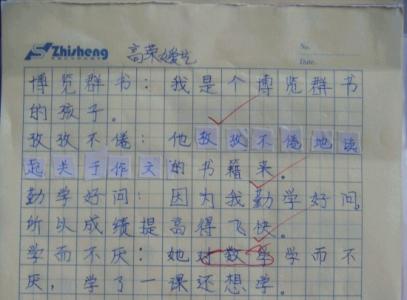 Zhisheng
No.
Date.
博览群书：我是个博览群书
的孩子。
孜孜不倦：他孜孜不倦地读
起关于作文的书籍来。
勤学好问：因为我勤学好问，
所以成绩提高得飞快。
学而不厌：她对数学学而不
厌，学了一课还想学。